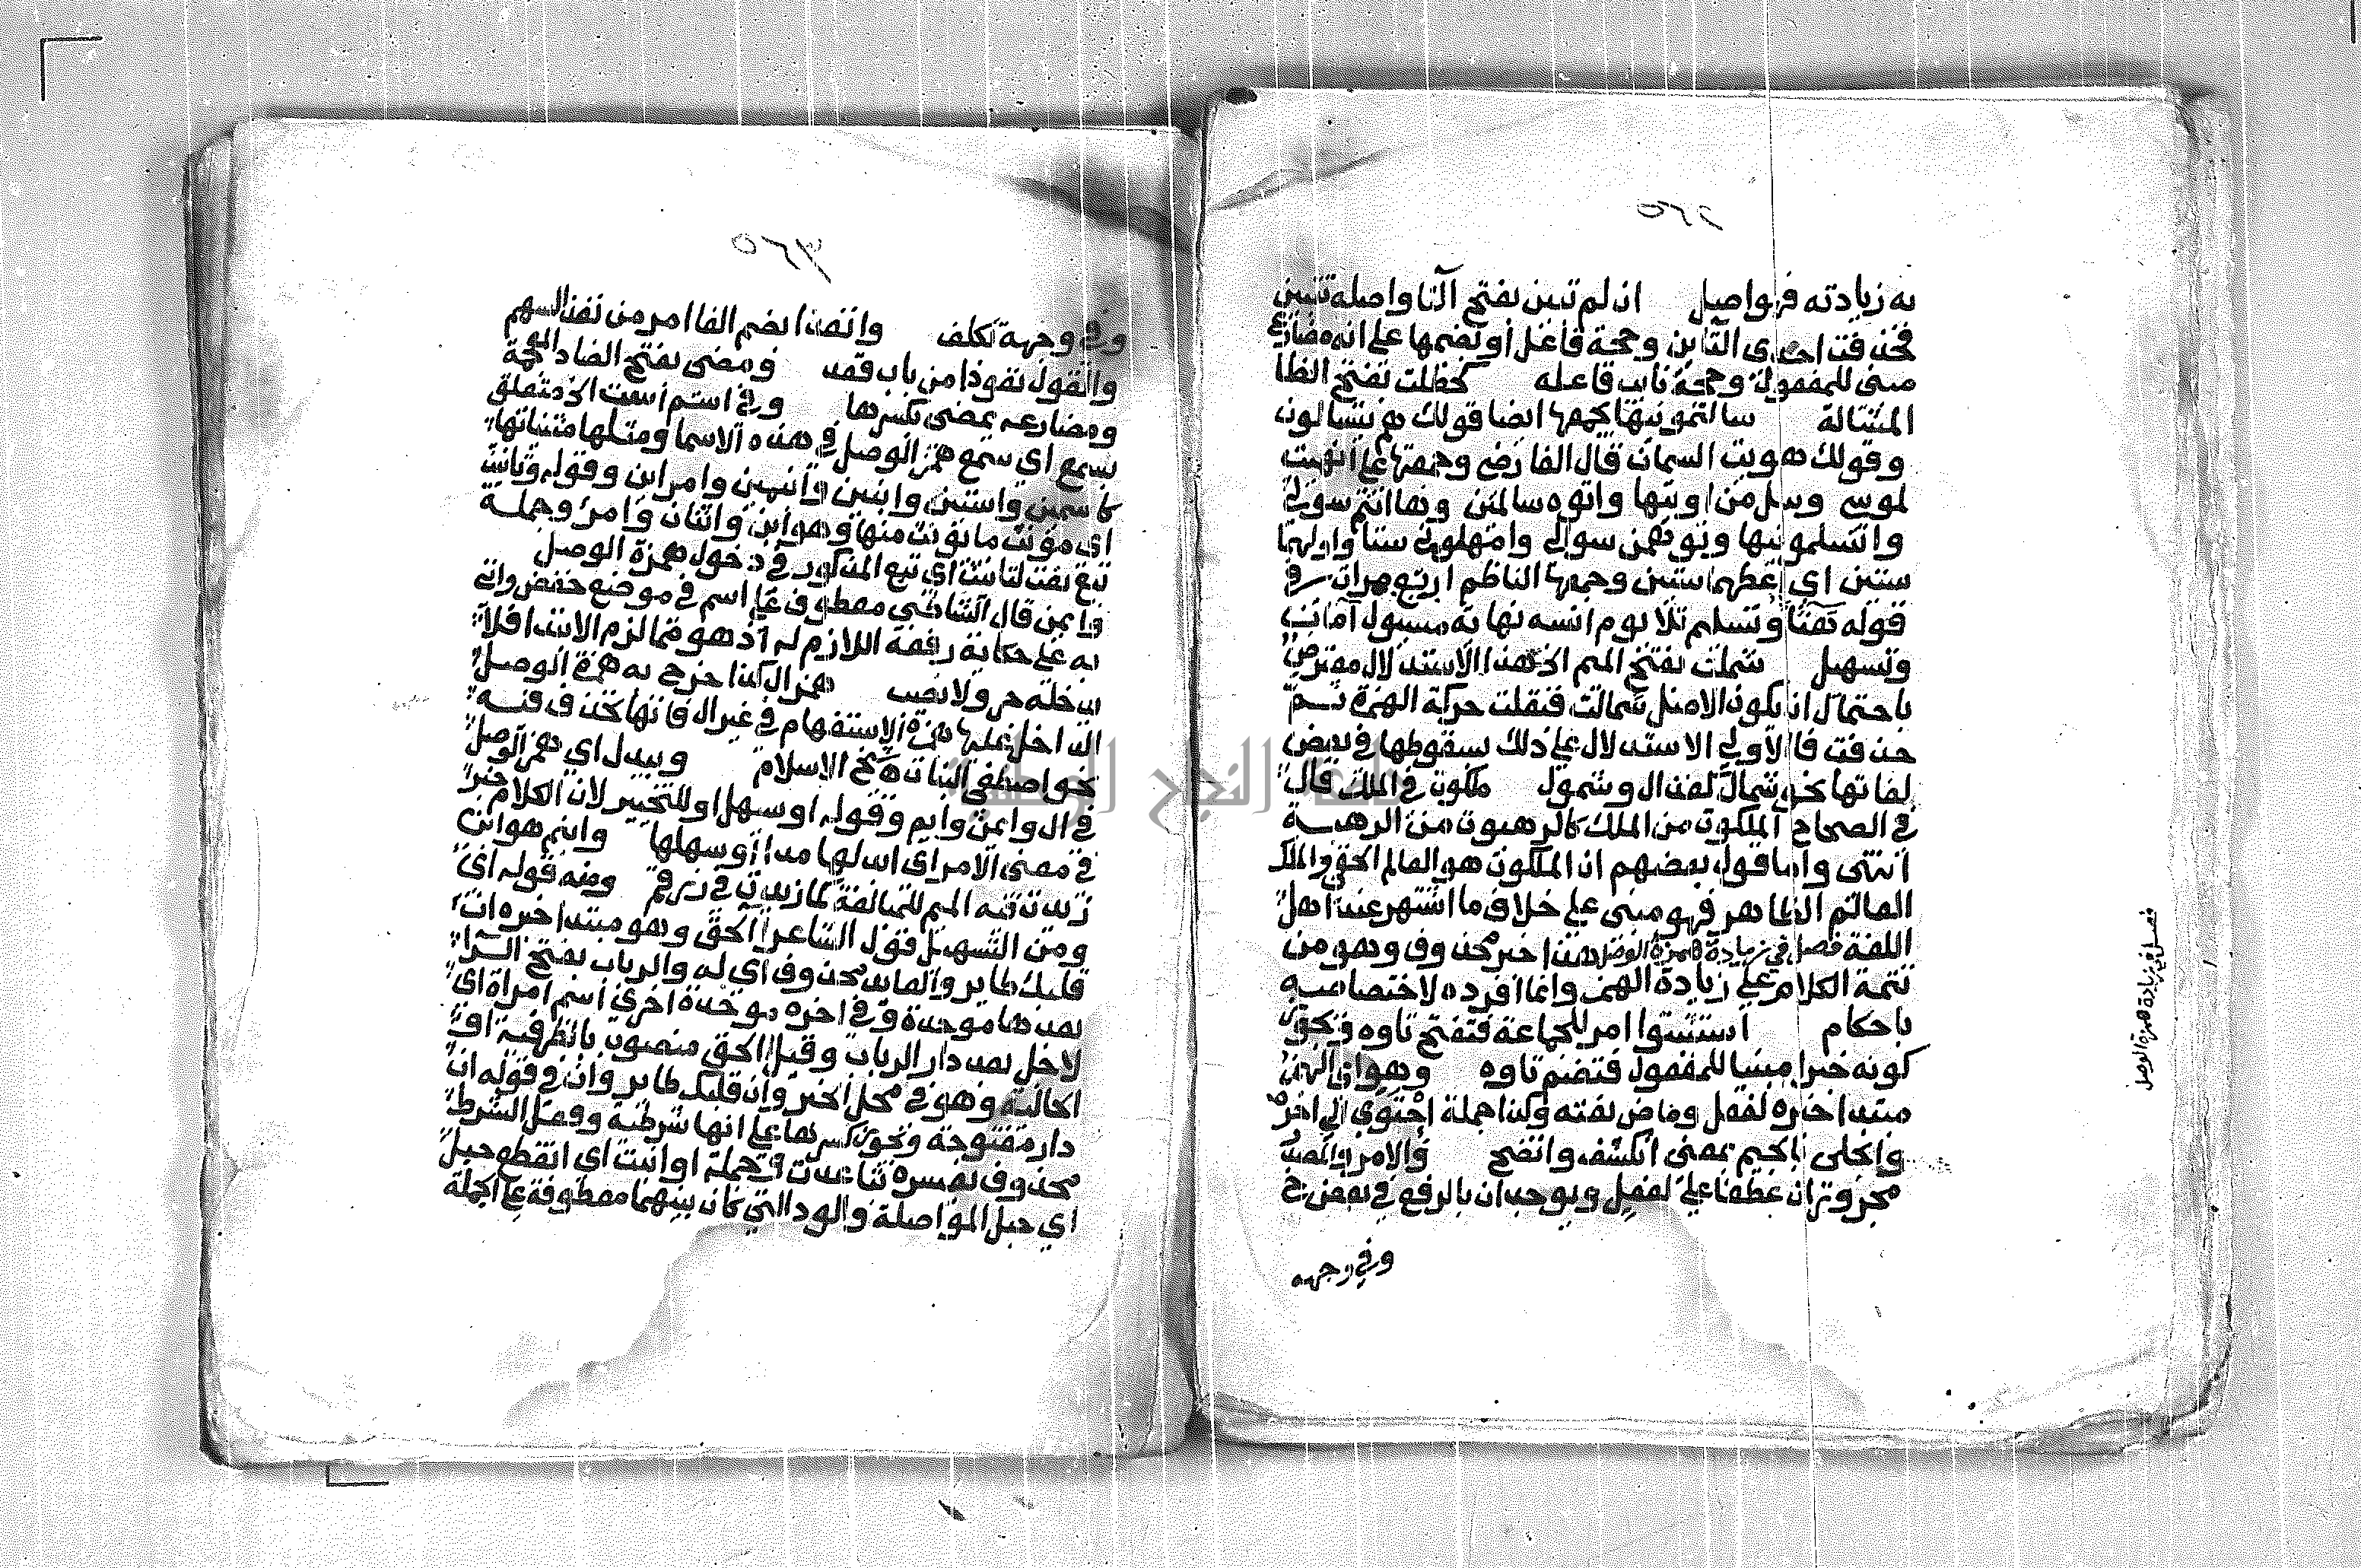 ٥٦٢
به زيادته فهو اصيل ان لم تبين بفتح التا واصله تتبين
فحذفت احدى التاين وحجة فاعل او بضمها على انه مضارع
مبنى للمفعول وحجة نايب فاعله كحظلت بفتح الظا
المشالة سالتمونيها بجمعها ايضا قولك هم يتسالون
وقولك هويت السمان قال الفارضي وجمعتها على انهيت
لموسى وسل من اويتها واتوه سالمين وها انتم سولي
وانتسلموىيها وتوهمن سوالي وامهلوني ستا واوليهما
سنتين اي اعطهما سنتين وجمعها الناظم اربع مرات في
قوله هنآ وتسليم تلا يوم انسه نهاية مسول امان
وتسهيل شملت بفتح الميم الخ هذا الاستدلال معترض
باحتمال ان يكون الاصل شمالت فنقلت حركة الهمزة ثم
حذفت فالاولى الاستدلال على ذلك بسقوطها في بعض
لغاتها نحو شمال لغذال وشمول ملكوت في الملك قال
في الصحاح الملكوت من الملك كالرهبوت من الرهبة
انتهى واما قول بعضهم ان الملكوت هو العالم الخفي والملك
العالم الظاهر فهو مبنى على خلاف ما اشتهر عند اهل
اللغة فصل في زيادة همزة الوصل هذا خبر محذوف وهو من
تتمة الكلام على زيادة الهمز وانما افرده لاختصاصه
باحكام استثبتوا امر للجماعة فتفتح تاوه ويجوز
كونه خبرا مبنيا للمفعول فتضم تاوه وهو اي الهمز
مبتدا خبره لفعل وماض نعته وكذا جملة احتوى الى اخره
وانجلى بالجيم بمعنى انكشف واتضح والامر والمصدر
مجروران عطفا على لفعل ويوجدان بالرفع في بعض نخ
وفي وجهه
فصل في زيادة همزة الوصل
٥٦٣
وفي وجهة تكلف وانفذ بضم الفا امر من نفذ السهم
والقول نفوذا من باب قعد ومضى بفتح الضاد المعجمة
ومضارعه يمضى بكسرها وفي اسم است الخ متعلق
بسمع اي سمع همز الوصل في هذه الاسما ومثلها مثنياتها
كاسمين واستين وابنين واثنين وامراين وقوله وتانيث
اي مونث ما يونث منها وهو ابن واثنان وامرؤ وجملة
تبع نعت لتانيث اي تبع المذكور في دخول همزة الوصل
وايمن قال الشاطبي معطوف على اسم في موضع خفض واتى
به على حكاية رفعه اللازم له اذ هو مما لزم الابتدا فلا
يدخله جر ولا نصب همز ال كذا خرج به همزة الوصل
الداخل عليها همزة الاستفهام في غير ال فانها تحذف فيه
نحو اصطفى البنات شيخ الاسلام ويبدل اي همز الوصل
في ال وايمن وايم وقوله او سهل او للتخيير لان الكلام خبر
في معنى الامر اي ابدلها مدا او سهلها وابنم هو ابن
زيدت فيه الميم للمبالغة كما زيدت في زرقم ومنه قوله اي
ومن التسهيل قول الشاعر الحق وهو مبتدا خبره ان
قلبك طاير والعايد محذوف اي له والرباب بفتح الرا
بعدها موحدة وفي اخره موحدة اخرى اسم امراة اي
لاجل بعد دار الرباب وقيل الحق منصوب بالظرفية او
الحالية وهو في محل الخبر وان قلبك طاير وان في قوله ان
دار مفتوحة ويجوز كسرها على انها شرطية وفعل الشرط
محذوف يفسره تباعدت وجملة او انبت اي انقطع حبل
اي حبل المواصلة والود التي كان بينهما معطوفة على الجملة